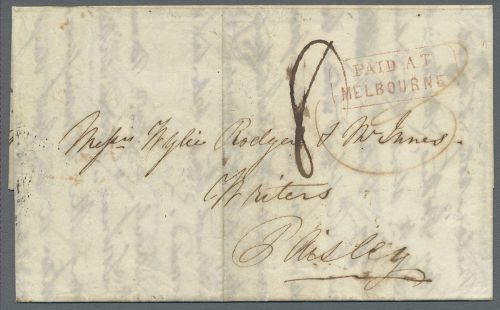 8
PAID AT
MELBOURNE
Messrs Wylie Rodger & McInnes
Writers
Paisley